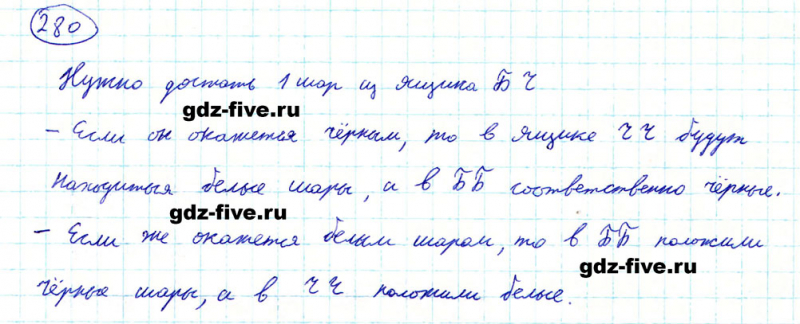 280
Нужно достать 1 шар из ящика БЧ
gdz-five.ru
– Если он окажется чёрным, то в ящике ЧЧ будут
находиться белые шары, а в ББ соответственно чёрные.
gdz-five.ru
– Если же окажется белым шаром, то в ББ положили
gdz-five.ru
чёрные шары, а в ЧЧ положили белые.